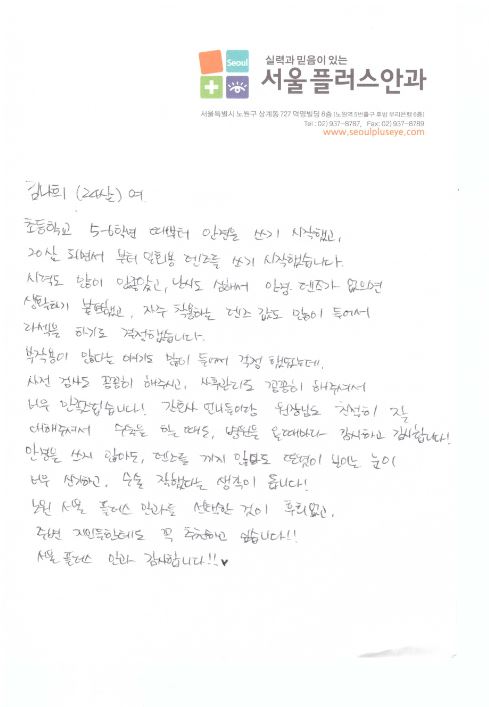 Seoul
실력과 믿음이 있는
서울플러스안과
서울특별시 노원구 상계동 727 덕영빌딩 8층 (노원역 5번출구 후방 우리은행 8층)
Tel : 02) 937-8787, Fax : 02) 937-8789
www.seoulpluseye.com
김나희 (24살) 여.
초등학교 5-6학년 때부터 안경을 쓰기 시작했고,
20살 되면서 부터 일회용 렌즈를 쓰기 시작했습니다.
시력도 많이 안좋았고, 난시도 심해서 안경 렌즈가 없으면
생활하기 불편했고, 자주 착용하는 렌즈 값도 많이 들어서
라섹을 하기로 결정했습니다.
부작용이 많다는 얘기도 많이 들어서 걱정 했었는데,
사전 검사도 꼼꼼히 해주시고, 사후관리도 꼼꼼히 해주셔서
너무 만족스럽습니다! 간호사 언니들이랑 원장님도 친절히 잘
대해주셔서 수술을 할 때도, 병원을 올때마다 감사하고 감사합니다!
안경을 쓰지 않아도, 렌즈를 끼지 않아도 또렷이 보이는 눈이
너무 신기하고, 수술 잘했다는 생각이 듭니다!
노원 서울 플러스 안과를 선택한 것이 후회없고,
주변 지인들한테도 꼭 추천하고 싶습니다!!
서울 플러스 안과 감사합니다!! ♥